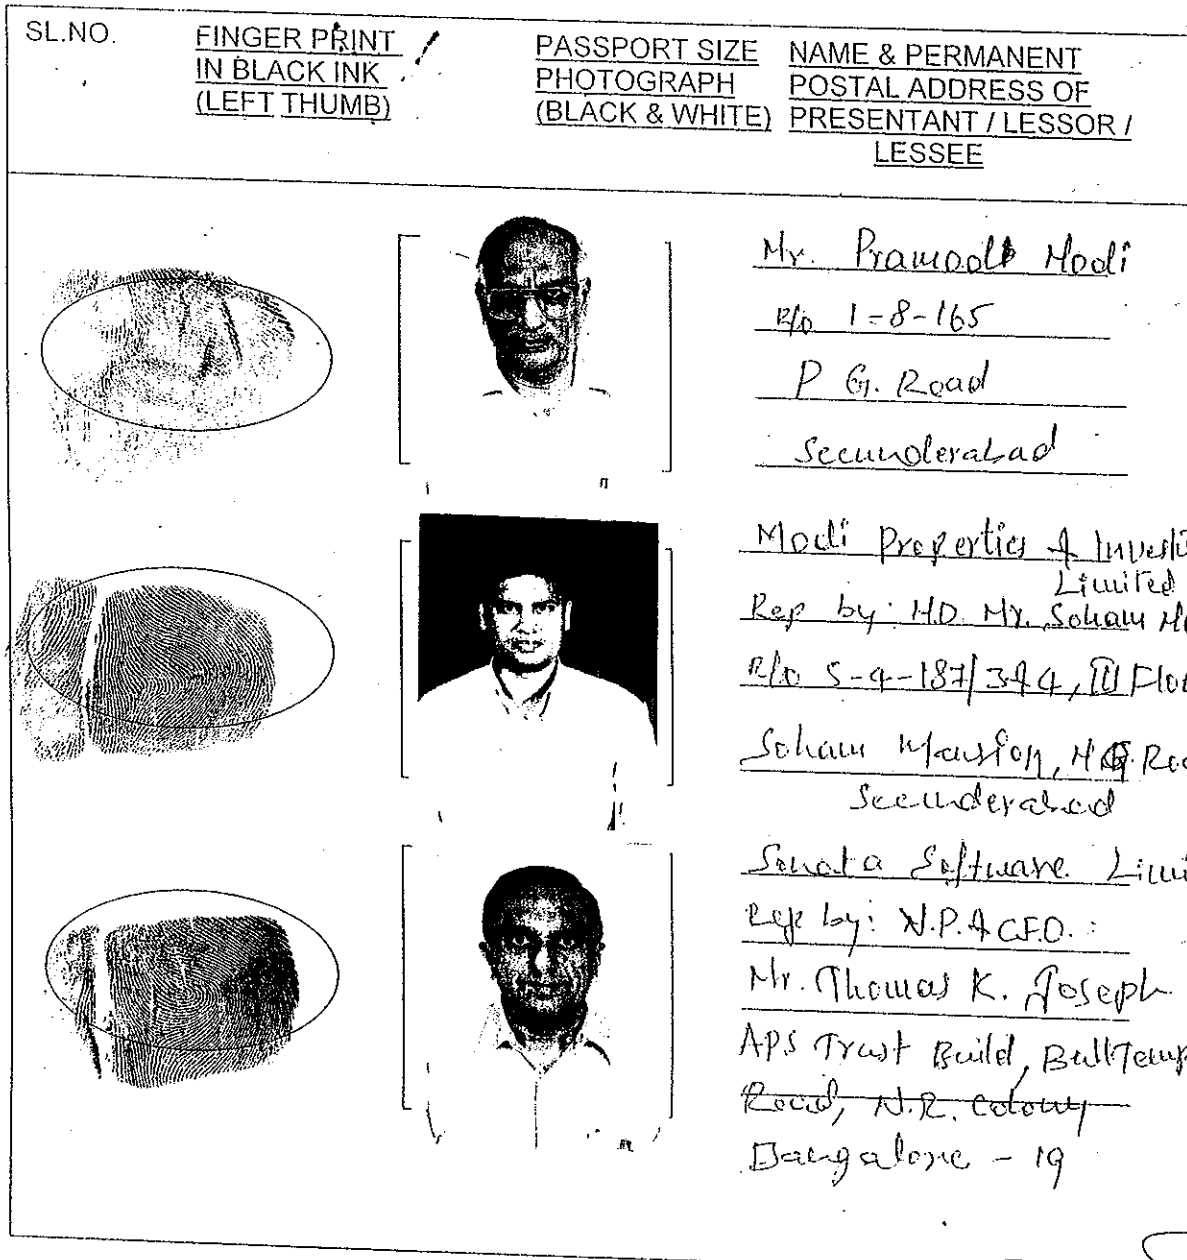 SL.NO.
FINGER PRINT
IN BLACK INK
(LEFT THUMB)
PASSPORT SIZE
PHOTOGRAPH
(BLACK & WHITE)
NAME & PERMANENT
POSTAL ADDRESS OF
PRESENTANT / LESSOR /
LESSEE
Mr. Pramod Modi
R/o 1-8-165
P G. Road
Secunderabad
Modi Properties &
Limited
Rep by: M.D. Mr. Soham
R/o 5-4-187/3&4, III
Soham Mansion, M.G.
Secunderabad
Sonata Software
Rep by: V.P. & C.F.O. :
Mr. Thomas K. Joseph
APS Trust Build, Bull
Road, N.R. Colony
Bangalore - 19